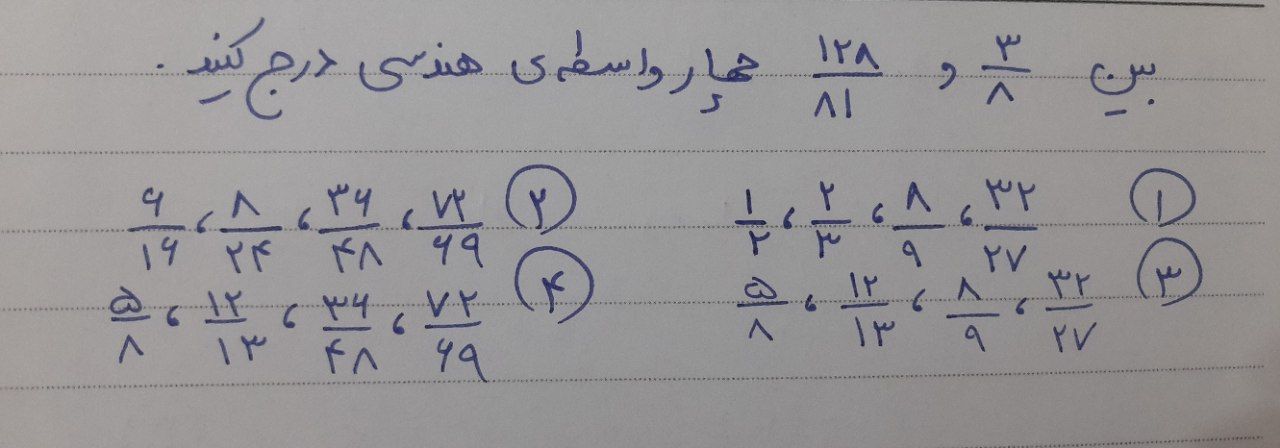 بین ۳/۸ و ۱۲۸/۸۱ چهار واسطه‌ی هندسی درج کنید.
۱ ۱/۲ ، ۲/۳ ، ۸/۹ ، ۳۲/۲۷ ۲ ۶/۱۶ ، ۸/۲۴ ، ۳۶/۴۸ ، ۷۲/۶۹
۳ ۵/۸ ، ۱۲/۱۳ ، ۸/۹ ، ۳۲/۲۷ ۴ ۵/۸ ، ۱۲/۱۳ ، ۳۶/۴۸ ، ۷۲/۶۹